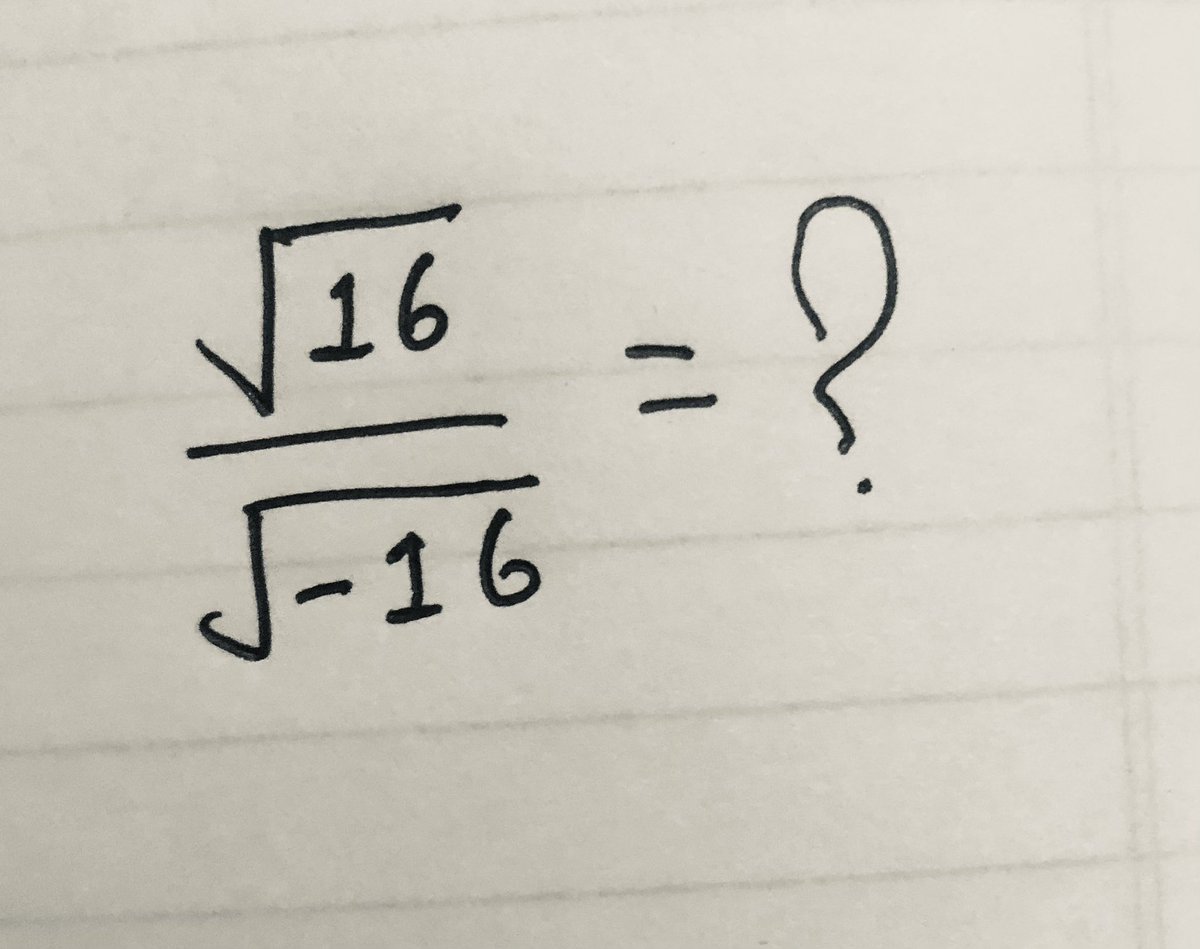 √16 / √-16 = ?